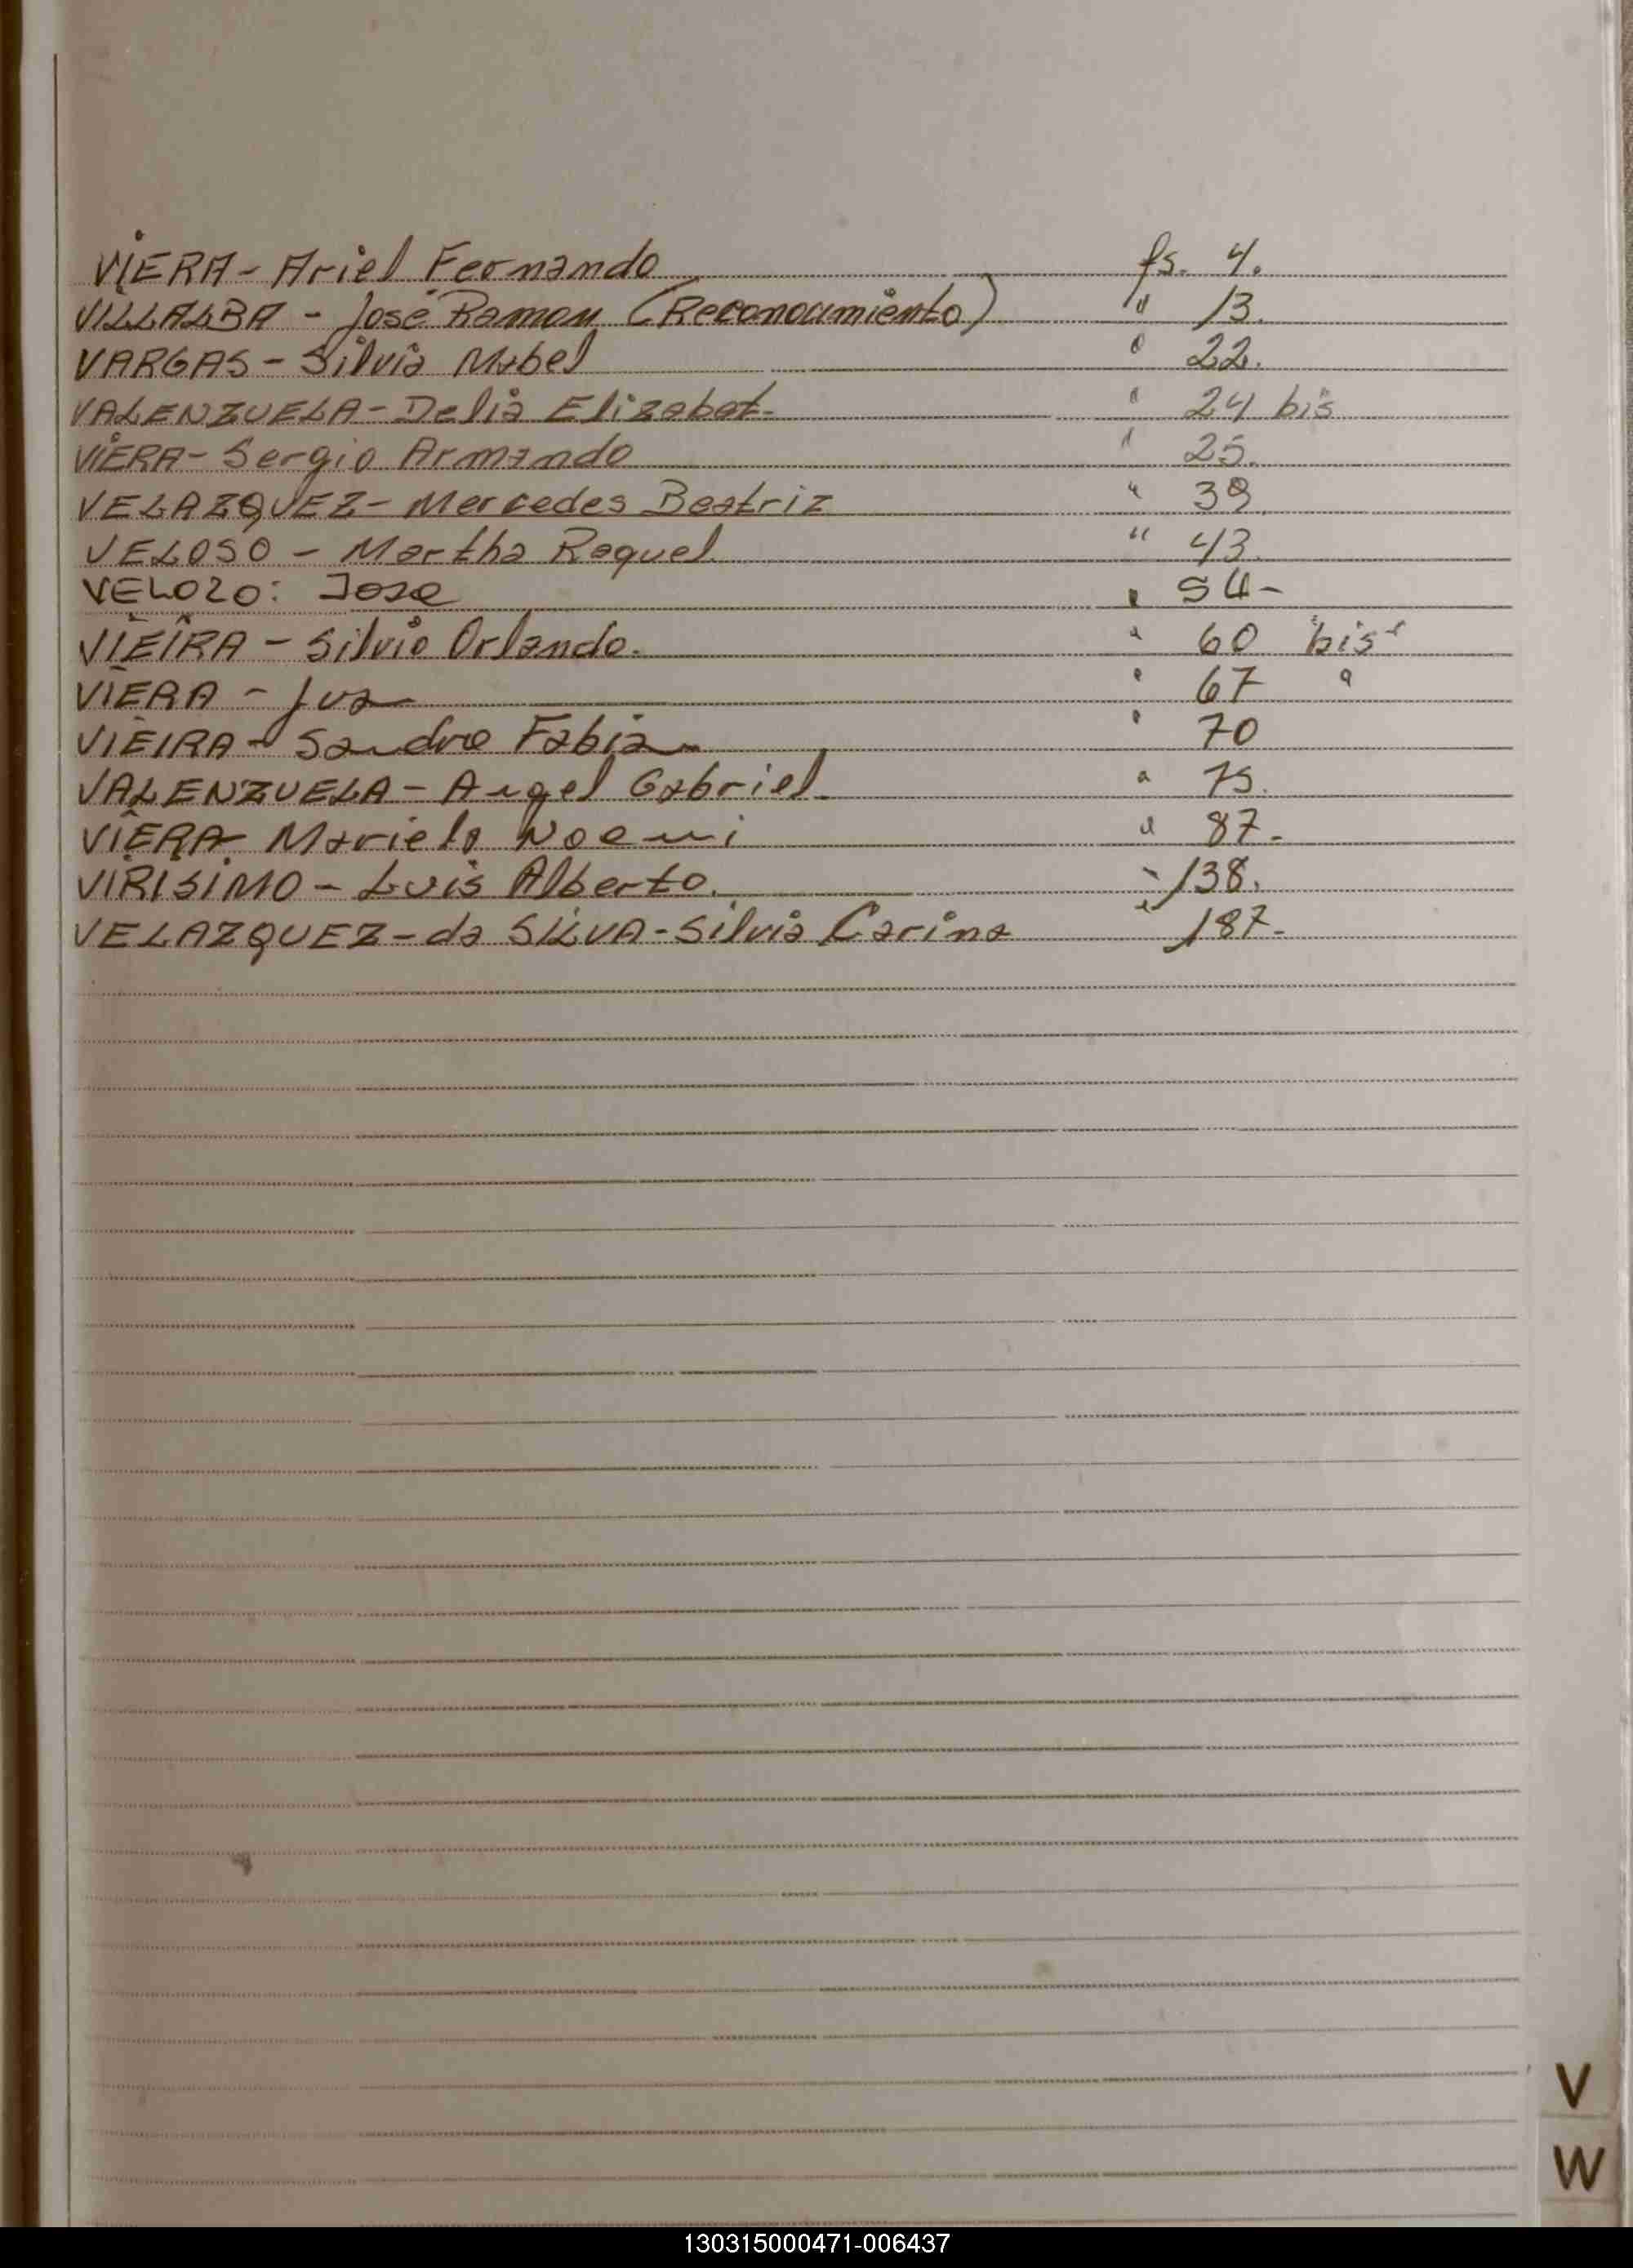 VIERA - Ariel Fernando fs. 4.
VILLALBA - José Ramon (Reconocimiento) " 13.
VARGAS - Silvia Mabel " 22.
VALENZUELA - Delia Elizabet. " 24 bis
VIERA - Sergio Armando " 25.
VELAZQUEZ - Mercedes Beatriz " 39.
VELOSO - Martha Raquel " 43.
VELOZO: Jose " 54-
VIEIRA - Silvio Orlando. " 60 bis
VIERA - Juan " 67 "
VIEIRA - Sandro Fabian " 70
VALENZUELA - Angel Gabriel. " 75.
VIERA Mariela Noemi " 87-
VIRISIMO - Luis Alberto. " 138.
VELAZQUEZ - da SILVA - Silvia Carina " 187-
V
W
130315000471-006437